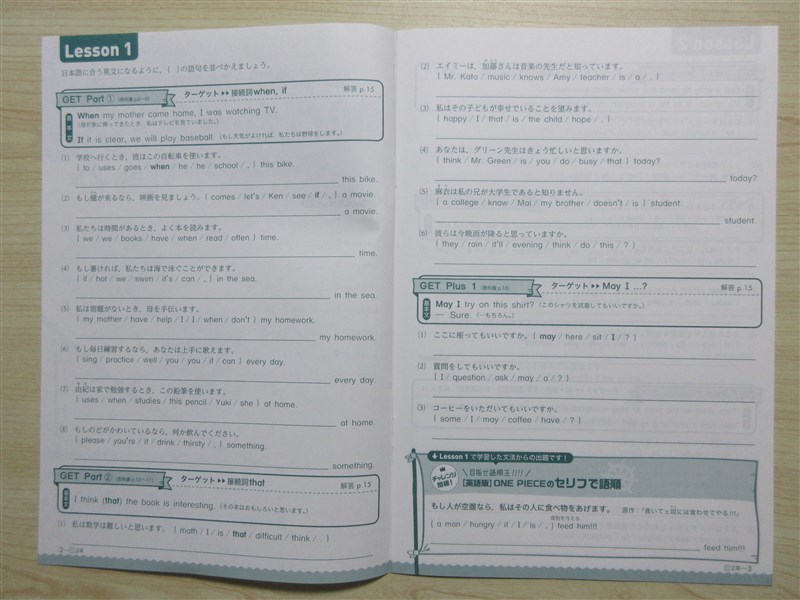 Lesson 1
日本語に合う英文になるように,〔 〕の語句を並べかえましょう。
GET Part ① ターゲット▶▶接続詞when, if 解答 p.15
基本文
When my mother came home, I was watching TV.
(母が家に帰ってきたとき,私はテレビを見ていました。)
If it is clear, we will play baseball. (もし天気がよければ,私たちは野球をします。)
(1) 学校へ行くとき,彼はこの自転車を使います。
〔 to / uses / goes / when / he / he / school / , 〕 this bike.
this bike.
(2) もし健が来るなら,映画を見ましょう。〔 comes / let's / Ken / see / if / , 〕 a movie.
a movie.
(3) 私たちは時間があるとき,よく本を読みます。
〔 we / we / books / have / when / read / often 〕 time.
time.
(4) もし暑ければ,私たちは海で泳ぐことができます。
〔 if / hot / we / swim / it's / can / , 〕 in the sea.
in the sea.
(5) 私は宿題がないとき,母を手伝います。
〔 my mother / have / help / I / I / when / don't 〕 my homework.
my homework.
(6) もし毎日練習するなら,あなたは上手に歌えます。
〔 sing / practice / well / you / you / if / can 〕 every day.
every day.
(7) 由紀は家で勉強するとき,この鉛筆を使います。
〔 uses / when / studies / this pencil / Yuki / she 〕 at home.
at home.
(8) もしのどがかわいているなら,何か飲んでください。
〔 please / you're / if / drink / thirsty / , 〕 something.
something.
GET Part ② ターゲット▶▶接続詞that 解答 p.15
基本文
I think (that) the book is interesting. (その本はおもしろいと思います。)
(1) 私は数学は難しいと思います。〔 math / I / is / that / difficult / think / . 〕
(2) エイミーは,加藤さんは音楽の先生だと知っています。
〔 Mr. Kato / music / knows / Amy / teacher / is / a / . 〕
(3) 私はその子どもが幸せでいることを望みます。
〔 happy / I / that / is / the child / hope / . 〕
(4) あなたは,グリーン先生はきょう忙しいと思いますか。
〔 think / Mr. Green / is / you / do / busy / that 〕 today?
today?
(5) 麻衣は私の兄が大学生であると知りません。
〔 a college / know / Mai / my brother / doesn't / is 〕 student.
student.
(6) 彼らは今晩雨が降ると思っていますか。
〔 they / rain / it'll / evening / think / do / this / ? 〕
GET Plus 1 ターゲット▶▶May I ...? 解答 p.15
基本文
May I try on this shirt? (このシャツを試着してもいいですか。)
— Sure. (—もちろん。)
(1) ここに座ってもいいですか。〔 may / here / sit / I / ? 〕
(2) 質問をしてもいいですか。
〔 I / question / ask / may / a / ? 〕
(3) コーヒーをいただいてもいいですか。
〔 some / I / may / coffee / have / ? 〕
Lesson 1 で学習した文法からの出題です!
チャレンジ問題!
\ 目指せ語順王!!!! /
[英語版] ONE PIECEのセリフで語順
もし人が空腹なら,私はその人に食べ物をあげます。 原作:「食いてェ奴には食わせてやる!!!」
〔 a man / hungry / if / I / is / , 〕 feed him!!!
feed him!!!